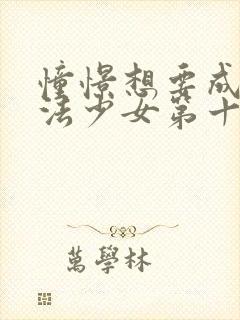 憧憬想要成
法少女第十
萬學林